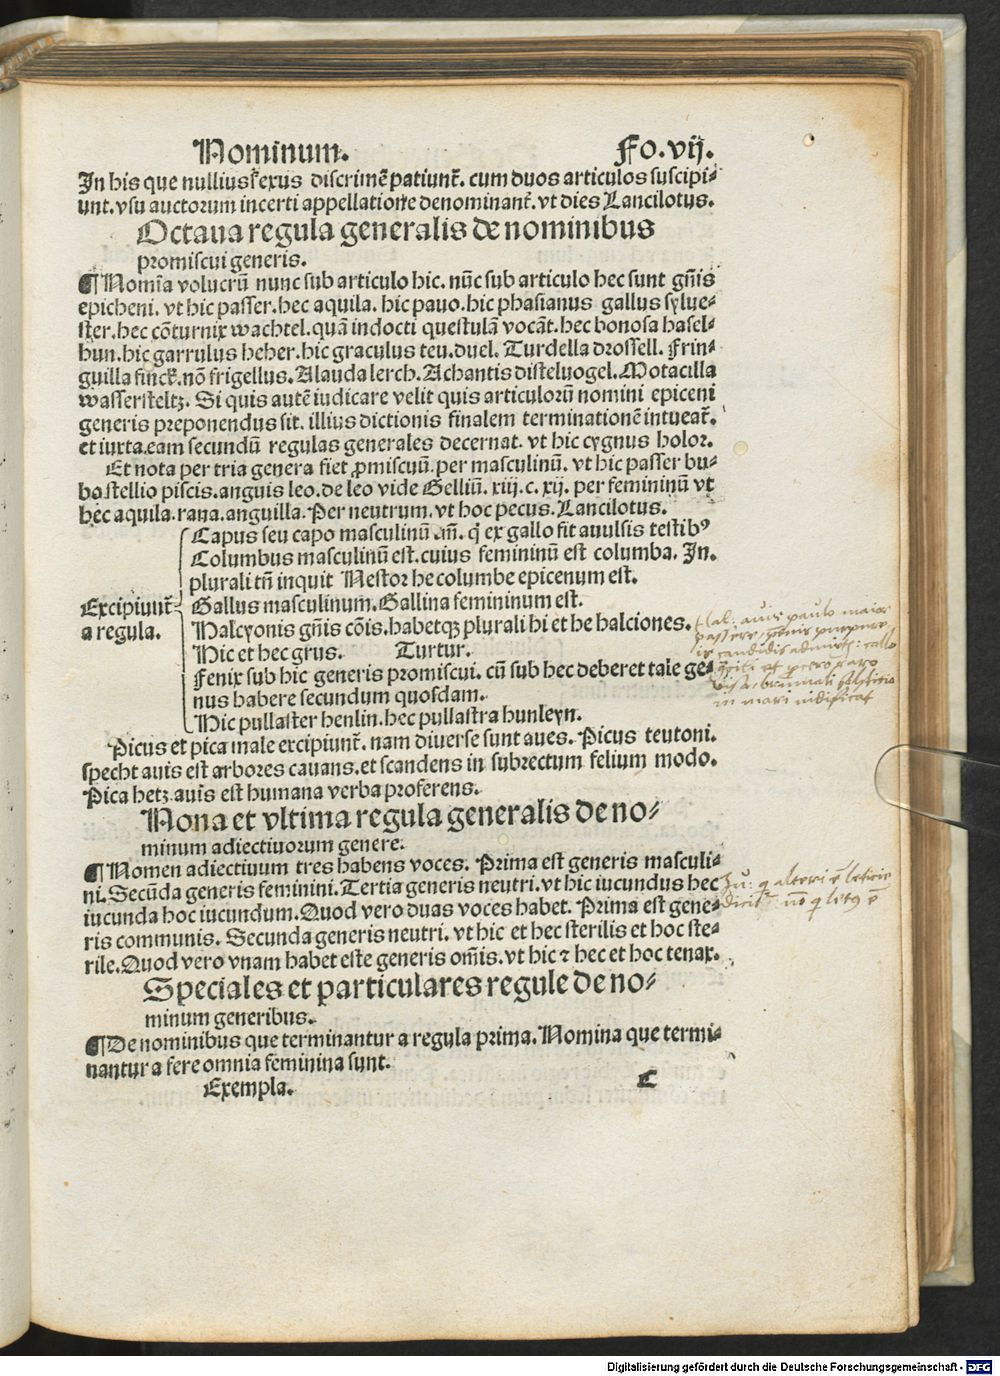 Nominum. Fo.vij.
In his que nullius sexus discrimē patiunt̄. cum duos articulos suscipi⸗
unt. vsu auctorum incerti appellatione denominant̄. vt dies Lancilotus.
Octaua regula generalis de nominibus
promiscui generis.
¶ Nomīa volucrū nunc sub articulo hic. nūc sub articulo hec sunt gn̄is
epicheni. vt hic passer. hec aquila. hic pauo. hic phasianus gallus sylue⸗
ster. hec cōturnix wachtel. quā indocti questulā vocāt. hec bonosa hasel⸗
hun. hic garrulus heher. hic graculus teu. duel. Turdella drossell. Frin⸗
guilla finck. nō frigellus. Alauda lerch. Achantis distelvogel. Motacilla
wassersteltz. Si quis autē iudicare velit quis articulorū nomini epiceni
generis preponendus sit. illius dictionis finalem terminationē intueat̄.
et iuxta eam secundū regulas generales decernat. vt hic cygnus holor.
Et nota per tria genera fiet ꝓmiscuū. per masculinū. vt hic passer bu⸗
bo stellio piscis. anguis leo. de leo vide Gelliū. xiij. c. xij. per femininū vt
hec aquila. rana. anguilla. Per neutrum. vt hoc pecus. Lancilotus.
Capus seu capo masculinū .m̄. q̇ ex gallo fit auulsis testibꝰ
Columbus masculinū est. cuius femininū est columba. In
plurali tn̄ inquit Nestor he columbe epicenum est.
Excipiunt̄ Gallus masculinum. Gallina femininum est.
a regula. Halcyonis gn̄is cōis. habetqꝫ plurali hi et he halciones.
Hic et hec grus. Turtur.
Fenix sub hic generis promiscui. cū sub hec deberet tale ge⸗
nus habere secundum quosdam.
Hic pullaster henlin. hec pullastra hunleyn.
Hal: auis paulo maior
passere, pennis purpureis
candidis admixtis: collo
in mari nidificat
Picus et pica male excipiunt̄. nam diuerse sunt aues. Picus teutoni.
specht auis est arbores cauans. et scandens in subrectum felium modo.
Pica hetz. auis est humana verba proferens.
Nona et vltima regula generalis de no⸗
minum adiectiuorum genere.
¶ Nomen adiectiuum tres habens voces. Prima est generis masculi⸗
ni. Secūda generis feminini. Tertia generis neutri. vt hic iucundus hec
iucunda hoc iucundum. Quod vero duas voces habet. Prima est gene⸗
ris communis. Secunda generis neutri. vt hic et hec sterilis et hoc ste⸗
rile. Quod vero vnam habet este generis om̄is. vt hic ⁊ hec et hoc tenax.
Speciales et particulares regule de no⸗
minum generibus.
¶ De nominibus que terminantur a regula prima. Nomina que termi⸗
nantur a fere omnia feminina sunt.
Exempla. C
Digitalisierung gefördert durch die Deutsche Forschungsgemeinschaft - DFG